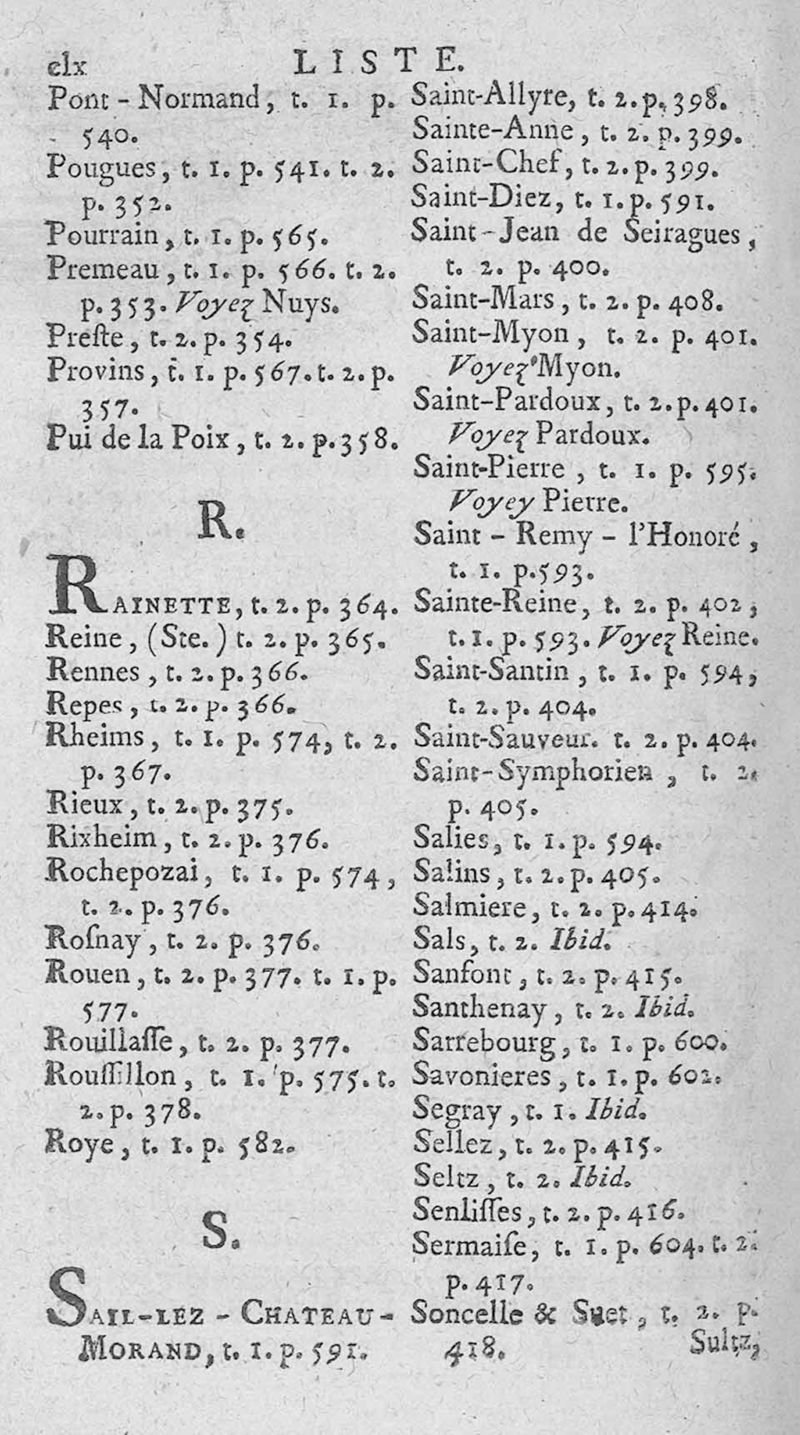 clx LISTE.
Pont-Normand, t. 1. p.
540.
Pougues, t. 1. p. 541. t. 2.
p. 352.
Pourrain, t. 1. p. 565.
Premeau, t. 1. p. 566. t. 2.
p. 353. Voyez Nuys.
Preſte, t. 2. p. 354.
Provins, t. 1. p. 567. t. 2. p.
357.
Pui de la Poix, t. 2. p. 358.
R.
RAINETTE, t. 2. p. 364.
Reine, (Ste.) t. 2. p. 365.
Rennes, t. 2. p. 366.
Repes, t. 2. p. 366.
Rheims, t. 1. p. 574, t. 2.
p. 367.
Rieux, t. 2. p. 375.
Rixheim, t. 2. p. 376.
Rochepozai, t. 1. p. 574,
t. 2. p. 376.
Roſnay, t. 2. p. 376.
Rouen, t. 2. p. 377. t. 1. p.
577.
Rouillaſſe, t. 2. p. 377.
Rouſſillon, t. 1. p. 575. t.
2. p. 378.
Roye, t. 1. p. 582.
S.
SAIL-LEZ-CHATEAU-
MORAND, t. 1. p. 591.
Saint-Allyre, t. 2. p. 398.
Sainte-Anne, t. 2. p. 399.
Saint-Chef, t. 2. p. 399.
Saint-Diez, t. 1. p. 591.
Saint-Jean de Seiragues,
t. 2. p. 400.
Saint-Mars, t. 2. p. 408.
Saint-Myon, t. 2. p. 401.
Voyez Myon.
Saint-Pardoux, t. 2. p. 401.
Voyez Pardoux.
Saint-Pierre, t. 1. p. 595.
Voyey Pierre.
Saint-Remy-l'Honoré,
t. 1. p. 593.
Sainte-Reine, t. 2. p. 402,
t. 1. p. 593. Voyez Reine.
Saint-Santin, t. 1. p. 594,
t. 2. p. 404.
Saint-Sauveur. t. 2. p. 404.
Saint-Symphorien, t. 2.
p. 405.
Salies, t. 1. p. 594.
Salins, t. 2. p. 405.
Salmiere, t. 2. p. 414.
Sals, t. 2. Ibid.
Sanfont, t. 2. p. 415.
Santhenay, t. 2. Ibid.
Sarrebourg, t. 1. p. 600.
Savonieres, t. 1. p. 602.
Segray, t. 1. Ibid.
Sellez, t. 2. p. 415.
Seltz, t. 2. Ibid.
Senliſſes, t. 2. p. 416.
Sermaiſe, t. 1. p. 604. t. 2.
p. 417.
Soncelle & Suet, t. 2. p.
418.
Sultz,